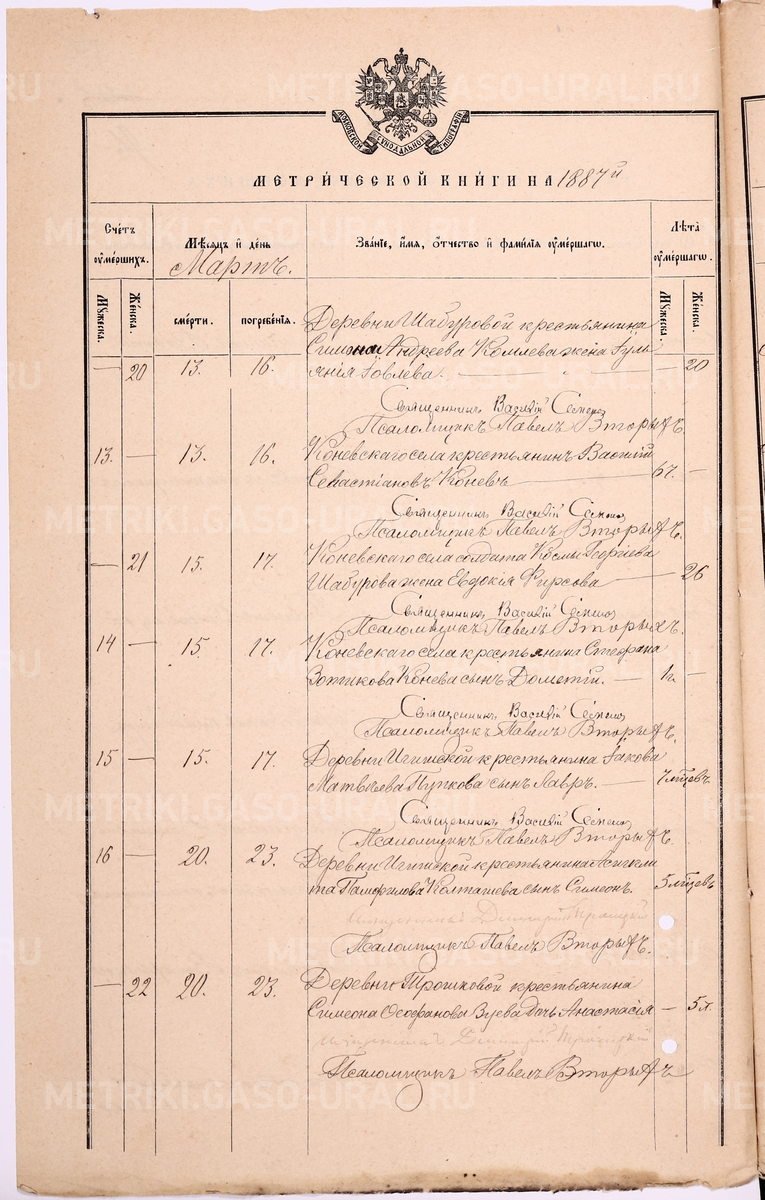 МОСКОВСКОЙ СѴНОДАЛЬНОЙ ТИПОГРАФІИ
МЕТРИ́ЧЕСКОЙ КНИ́ГИ НА 1887й
Счетъ оумершихъ.
Мѣсяцъ и день
Мартъ.
Званіе, имя, отчество и фамилія оумершагѡ.
Лѣта оумершагѡ.
Мужеска.
Женска.
смерти.
погребенія.
Мужеска.
Женска.
Деревни Шабуровой крестьянина
Симеона Андреева Комлева жена Іули
— 20 13. 16. анія Іовлева. — 20
Священникъ Василій
Псаломщикъ Павелъ Вторыхъ.
13. — 13. 16. Коневскаго села крестьянинъ Василій
Севастіановъ Коневъ — 67. —
Священникъ Василій
Псаломщикъ Павелъ Вторыхъ.
— 21 15. 17. Коневскаго села солдата Космы Георгіева
Шабурова жена Евдокія Фирсова — 26
Священникъ Василій
Псаломщикъ Павелъ Вторыхъ.
14 — 15 17. Коневскаго села крестьянина Стефана
Зотикова Конева сынъ Дометій. — 1г. —
Священникъ Василій
Псаломщикъ Павелъ Вторыхъ.
15 — 15. 17. Деревни Игишской крестьянина Іакова
Матвѣева Пупкова сынъ Лавръ. — 7 мѣсцевъ
Священникъ Василій
Псаломщикъ Павелъ Вторыхъ.
16 — 20. 23. Деревни Игишской крестьянина
Памфилова Колташева сынъ Симеонъ. 5 мѣсцевъ
Священникъ Димитрій Троицкій
Псаломщикъ Павелъ Вторыхъ.
— 22 20. 23. Деревни Трошковой крестьянина
Симеона Ѳеофанова Зуева дочь Анастасія — 5 л.
Священникъ Димитрій Троицкій
Псаломщикъ Павелъ Вторыхъ
METRIKI.GASO-URAL.RU